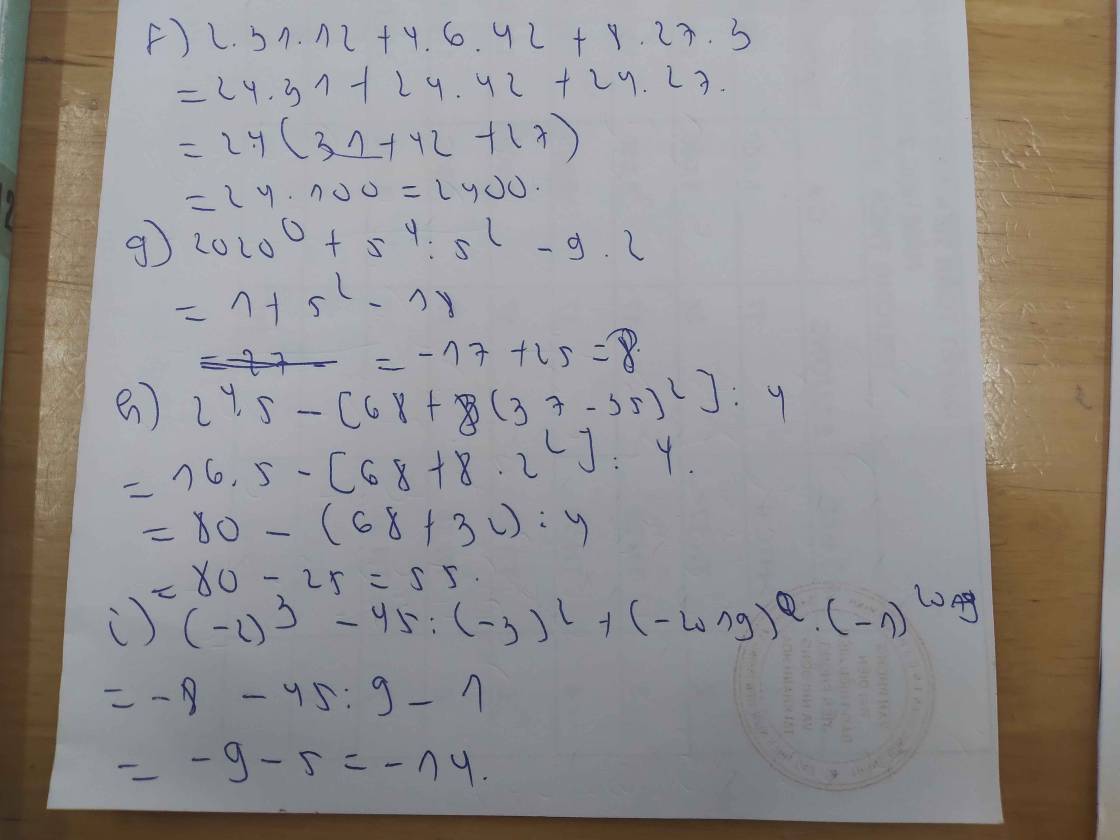 f) 2.31.12 + 4.6.42 + 8.27.3
= 24.31 + 24.42 + 24.27.
= 24(31+42 +27)
= 24.100 = 2400.
g) 2020⁰ + 5⁴:5² - 9.2
= 1 + 5² - 18
= -17 +25 = 8.
h) 2⁴.5 - [68 + 8(37 -35)²] : 4
= 16.5 - [68 +8.2²] : 4.
= 80 - (68 + 32) : 4
= 80 - 25 = 55.
i) (-2)³ - 45:(-3)² + (-2019)⁰.(-1)²⁰¹⁹
= -8 - 45:9 - 1
= -9 - 5 = -14.